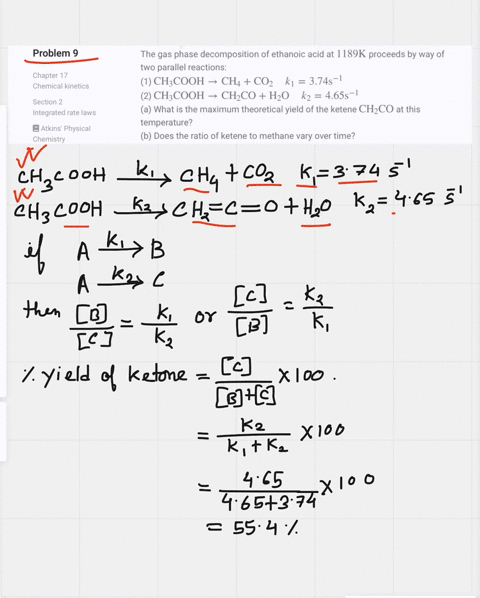 Problem 9
Chapter 17
Chemical kinetics
Section 2
Integrated rate laws
Atkins' Physical
Chemistry
The gas phase decomposition of ethanoic acid at 1189K proceeds by way of
two parallel reactions:
(1) CH₃COOH → CH₄ + CO₂ k₁ = 3.74s⁻¹
(2) CH₃COOH → CH₂CO + H₂O k₂ = 4.65s⁻¹
(a) What is the maximum theoretical yield of the ketene CH₂CO at this
temperature?
(b) Does the ratio of ketene to methane vary over time?
CH₃COOH —k₁→ CH₄ + CO₂ K₁ = 3.74 s⁻¹
CH₃COOH —k₂→ CH₂=C=O + H₂O K₂ = 4.65 s⁻¹
if A —k₁→ B
A —k₂→ C
then [B]/[C] = K₁/K₂ or [C]/[B] = K₂/K₁
% yield of ketone = [C]/[B]+[C] × 100.
= K₂/K₁+K₂ × 100
= 4.65/4.65+3.74 × 100
= 55.4 %